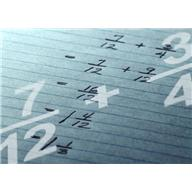 7/12 + 3/4
= 7/12 + 9/12
= 16/12
= 1 4/12
= 1 1/3
7/12 × 3/4